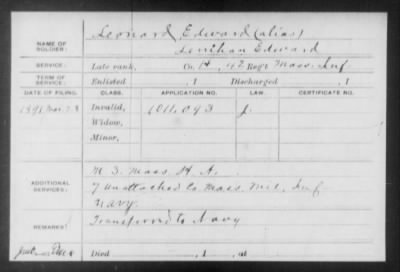 Leonard, Edward (alias)
NAME OF SOLDIER: Lenihan Edward
SERVICE: Late rank, Co. H, 42 Reg't Mass. Inf
TERM OF SERVICE: Enlisted , 1 Discharged , 1
DATE OF FILING. CLASS. APPLICATION NO. LAW. CERTIFICATE NO.
1891 Invalid, 1011,093 J.
Widow,
Minor,
ADDITIONAL SERVICES: M 3. Mass. H. A.
7 Unattached Co. Mass. Mil. Inf
Navy.
REMARKS: Transferred to Navy
Died , 1 , at